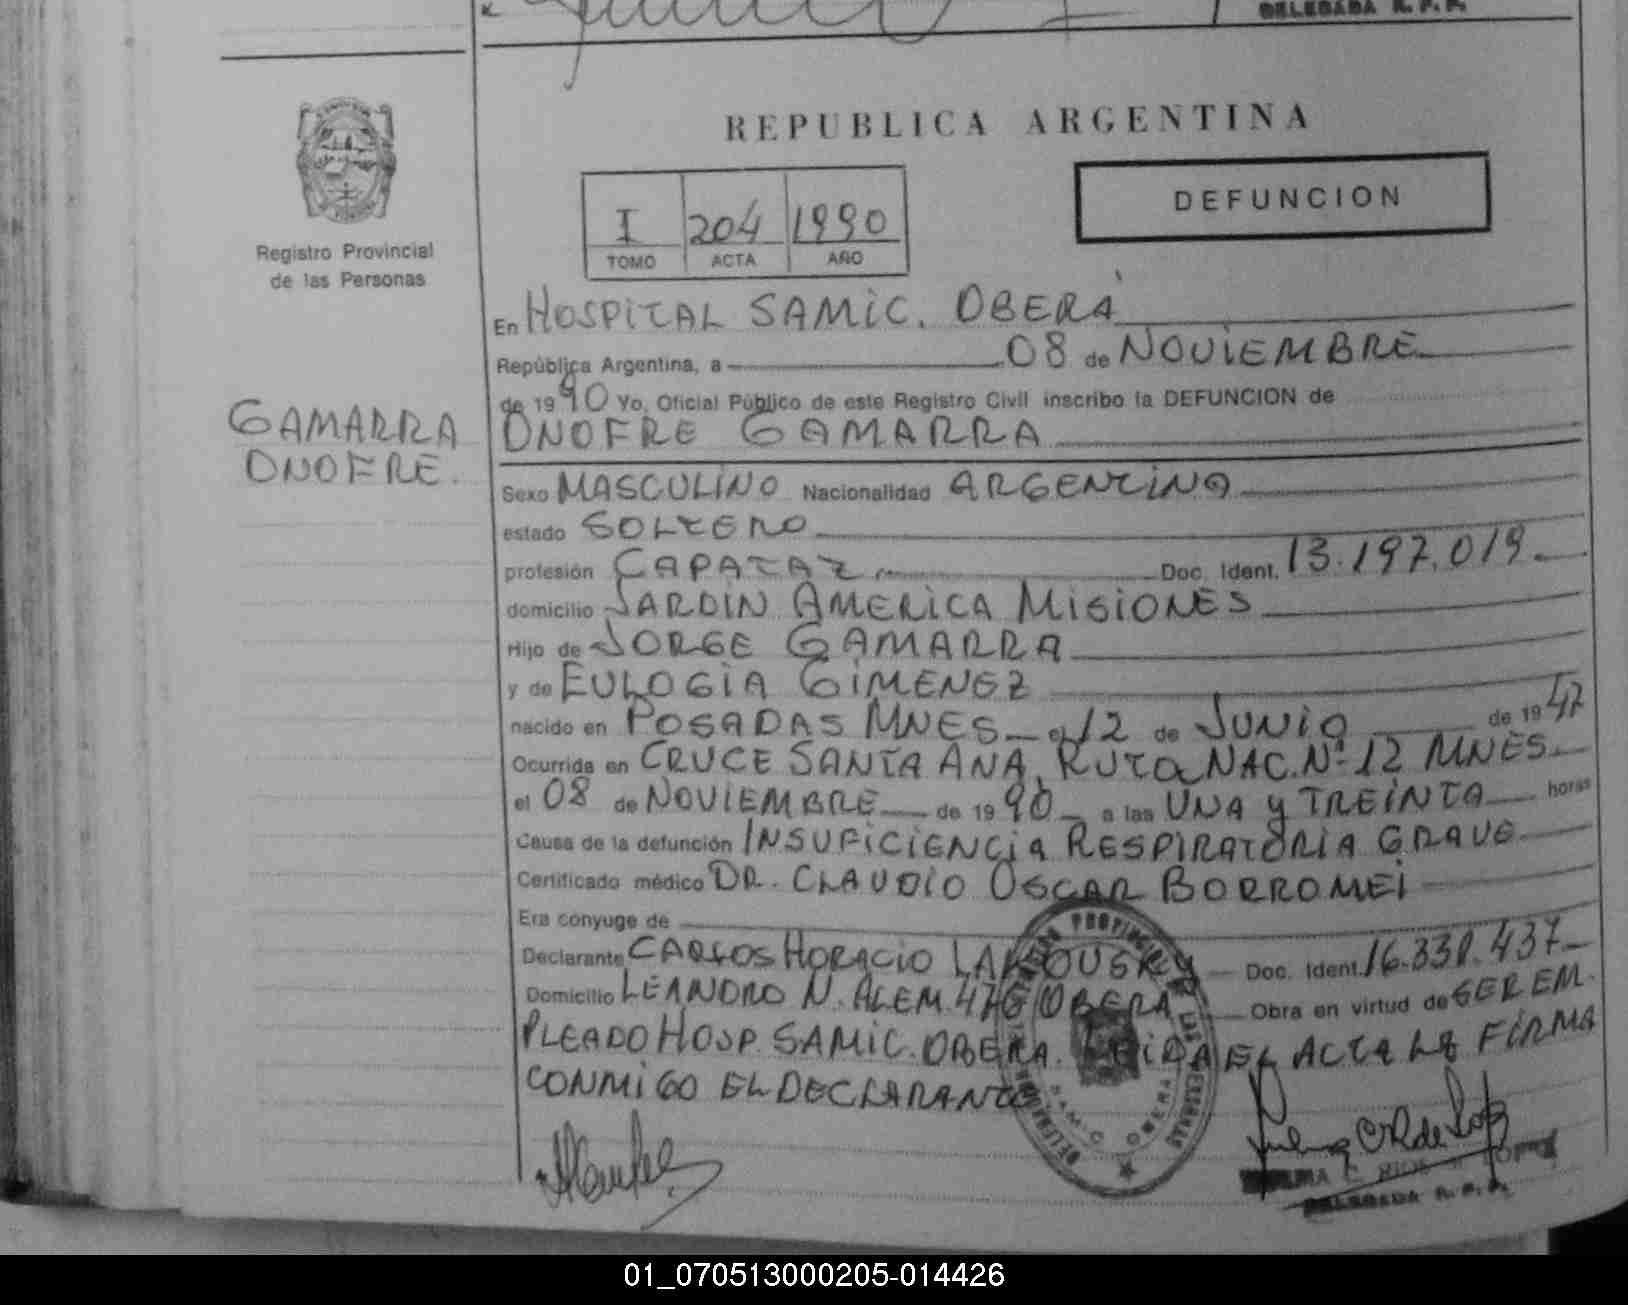 DELEGADA R. P. P.
REPUBLICA ARGENTINA
DEFUNCION
I 204 1990
TOMO ACTA AÑO
Registro Provincial
de las Personas
GAMARRA
ONOFRE.
En HOSPITAL SAMIC. OBERÁ
República Argentina, a 08 de NOVIEMBRE
de 1990 Yo, Oficial Público de este Registro Civil inscribo la DEFUNCION de
ONOFRE GAMARRA
Sexo MASCULINO Nacionalidad ARGENTINA
estado SOLTERO
profesión CAPATAZ Doc. Ident. 13.197.019
domicilio JARDIN AMERICA MISIONES
Hijo de JORGE GAMARRA
y de EULOGIA GIMENEZ
nacido en POSADAS MNES el 12 de JUNIO de 1947
Ocurrida en CRUCE SANTA ANA, RUTA NAC. Nº 12 MNES
el 08 de NOVIEMBRE de 1990 a las UNA y TREINTA horas
Causa de la defunción INSUFICIENCIA RESPIRATORIA GRAVE
Certificado médico DR. CLAUDIO OSCAR BORROMEI
Era conyuge de
Declarante CARLOS HORACIO Doc. Ident. 16.331.437
Domicilio LEANDRO N. ALEM 476 OBERA Obra en virtud de SER EM
PLEADO HOSP. SAMIC. OBERA. LEIDA EL ACTA LA FIRMA
CONMIGO EL DECLARANTE
DELEGADA R. P. P.
01_070513000205-014426